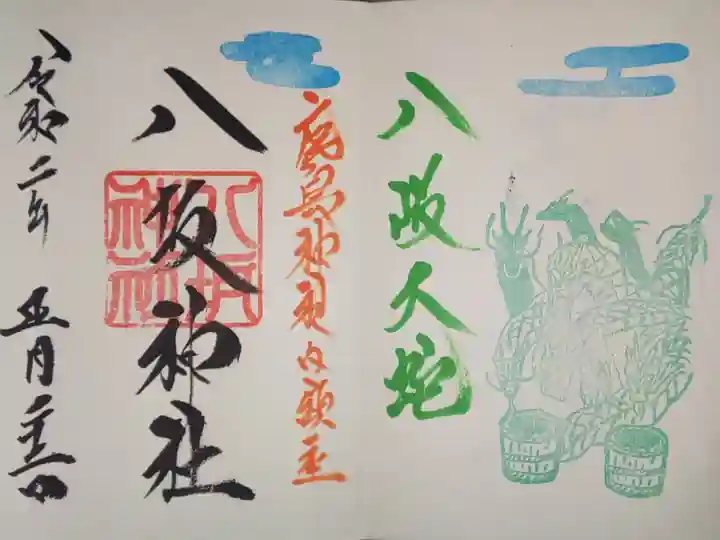 八岐大蛇
鹿島神社内鎮座
八坂神社
八坂
神社
令和二年